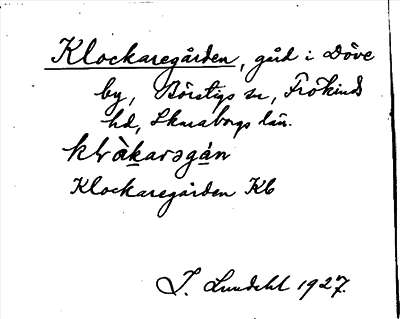 Klockaregården, gård i Döve
by, Börstigs sn, Frökinds
hd, Skaraborgs län.
klɷ̀karəgán
Klockaregården Kb
I. Lundahl 1927.